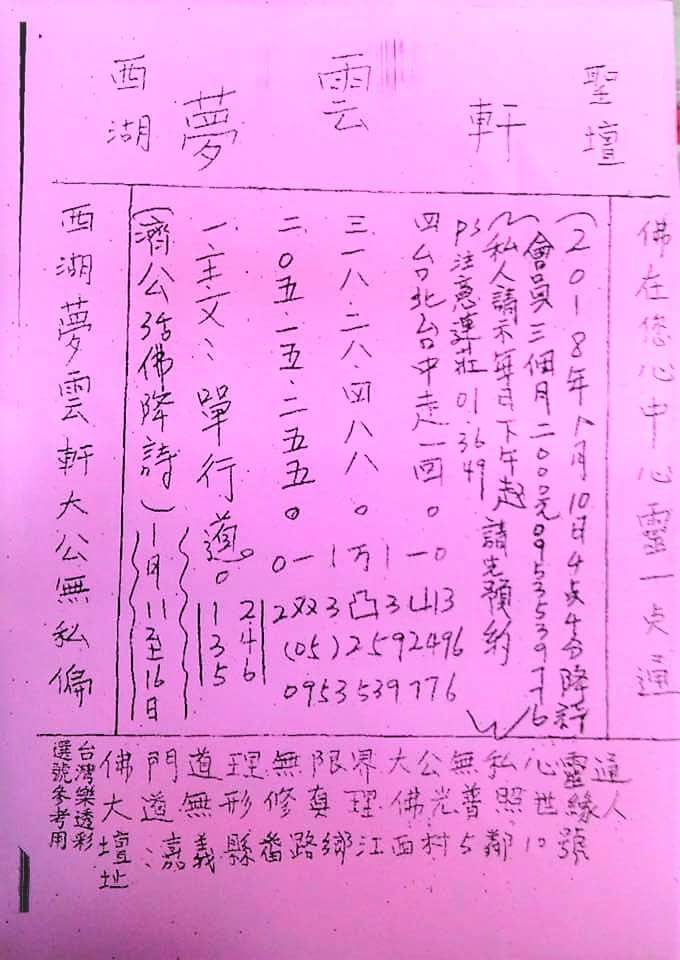 西湖夢雲軒聖壇
西湖夢雲軒大公無私偏
(濟公活佛降詩)八月11至16日
一.主文:單行道。
135
246
二.0五.一五.二五五。
三一八.二八.四八八。
四台北台中走一回。
0一1万1一0
2双3凸3山13
(05)2592496
0953539776
PS注意連莊01.36.49
私人請示每日下午起 請先預約
會員三個月二000元0953539776
(2018年八月10日4点4分降詩
佛在您心中心靈一点通
台灣樂透彩
選號參考用
佛門道理無限界大公無私心靈道人
大道無形修真理佛光普照世緣
壇址:嘉義縣番路鄉江西村5鄰10號